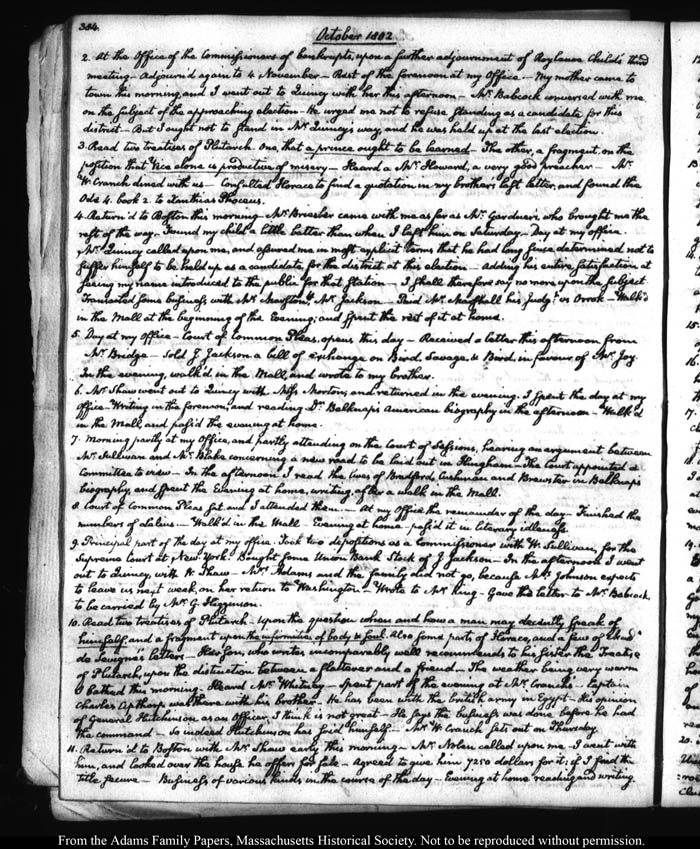 384.
October 1802
2. At the Office of the Commissioners of bankrupts, upon a further adjournment of Roylance Child's third
meeting. Adjourn'd again to 4. November — Rest of the forenoon at my Office — My mother came to
town this morning, and I went out to Quincy with her this afternoon — Mr. Babcock conversed with me
on the subject of the approaching election. He urged me not to refuse standing as a candidate for this
district — But I ought not to stand in Mr. Quincy's way, and he was held up at the last election.
3. Read two treatises of Plutarch. One, that a prince ought to be learned — The other, a fragment, on the
position that Vice alone is productive of misery — Heard a Mr. Howard, a very good preacher — Mr.
W. Cranch dined with us — Consulted Horace to find a quotation in my brother's last letter, and found the
Ode 4. book 2. to Xanthias Phoceus.
4. Return'd to Boston this morning. Mr. Bresler came with me as far as Mr. Gardner's, who brought me the
rest of the way. Found my child a little better than when I left him on Saturday — Day at my office.
Mr. Quincy called upon me, and assured me in most explicit terms that he had long since determined not to
suffer himself to be held up as a candidate, for the district at this election — adding his entire satisfaction at
seeing my name introduced to the public for that station — I shall therefore say no more upon the subject.
Transacted some business with Mr. Marston & Mr. Jackson — Paid Mr. Marshall his Judgt. vs Orrok — Walk'd
in the Mall at the beginning of the Evening; and spent the rest of it at home.
5. Day at my Office — Court of Common Pleas, opens this day — Received a letter this afternoon from
Mr. Bridge — Sold J. Jackson a bill of exchange on Bird, Savage, & Bird, in favour of Mr. Joy.
In the evening, walk'd in the Mall, and wrote to my brother.
6. Mr. Shaw went out to Quincy with Miss Morton; and returned in the evening. I spent the day at my
office. Writing in the forenoon; and reading Dr. Belknap's American biography in the afternoon — Walk'd
in the Mall, and pass'd the evening at home.
7. Morning partly at my Office, and partly attending on the Court of Sessions, hearing an argument between
Mr. Sullivan and Mr. Blake concerning a new road to be laid out in Hingham — The Court appointed a
Committee to view — In the afternoon I read the lives of Bradford, Cushman and Brewster in Belknap's
biography, and spent the Evening at home, writing, after a walk in the Mall.
8. Court of Common Pleas sat and I attended them — At my Office the remainder of the day — Finished the
numbers of Labius — Walk'd in the Mall — Evening at home — pass'd it in literary idleness.
9. Principal part of the day at my office. Took two depositions as a Commissioner with W. Sullivan for the
Supreme Court at New-York. Bought some Union Bank Stock of J. Jackson — In the afternoon I went
out to Quincy, with W. Shaw — Mrs. Adams and the family did not go, because Mrs. Johnson expects
to leave us next week, on her return to Washington — Wrote to Mr. King — Gave the letter to Mr. Babcock,
to be carried by Mr. G. Higginson.
10. Read two treatises of Plutarch — Upon the question when and how a man may decently speak of
himself, and a fragment upon the infirmities of body & soul. Also some parts of Horace, and a few of Made.
de Sevigné's letters — Her son, who writes incomparably well recommends to his sister the Treatise
of Plutarch, upon the distinction between a flatterer and a friend — The weather being very warm
I bathed this morning — Heard Mr. Whitney — Spent part of the evening at Mr. Cranch's — Captain
Charles Apthorp was there with his brother — He has been with the british army in Egypt — His opinion
of General Hutchinson as an Officer I think is not great — He says the business was done before he had
the command — So indeed Hutchinson has said himself — Mr. W. Cranch sets out on Thursday.
11. Return'd to Boston with Mr. Shaw early this morning — Mr. Nolan called upon me — I went with
him, and looked over the house he offers for sale — Agreed to give him 7250 dollars for it; if I find the
title secure — Business of various kinds in the course of the day — Evening at home reading and writing.
From the Adams Family Papers, Massachusetts Historical Society. Not to be reproduced without permission.